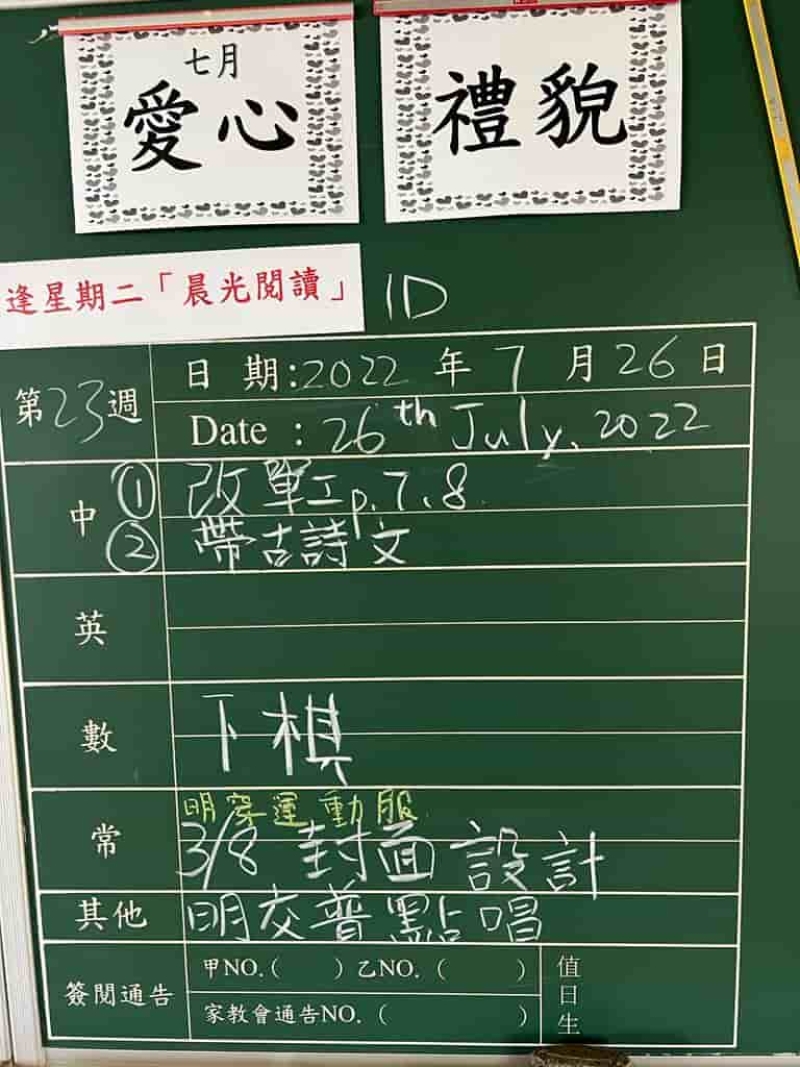 七月
愛心
禮貌
逢星期二「晨光閱讀」 1D
第23週
日 期:2022 年 7 月 26 日
Date : 26th July, 2022
中 ① 改單工p.7、8
② 帶古詩文
英
數 下棋
常 明穿運動服
3/8 封面設計
其他 明交普點唱
簽閱通告 甲NO.( ) 乙NO. ( )
家教會通告NO. ( )
值日生